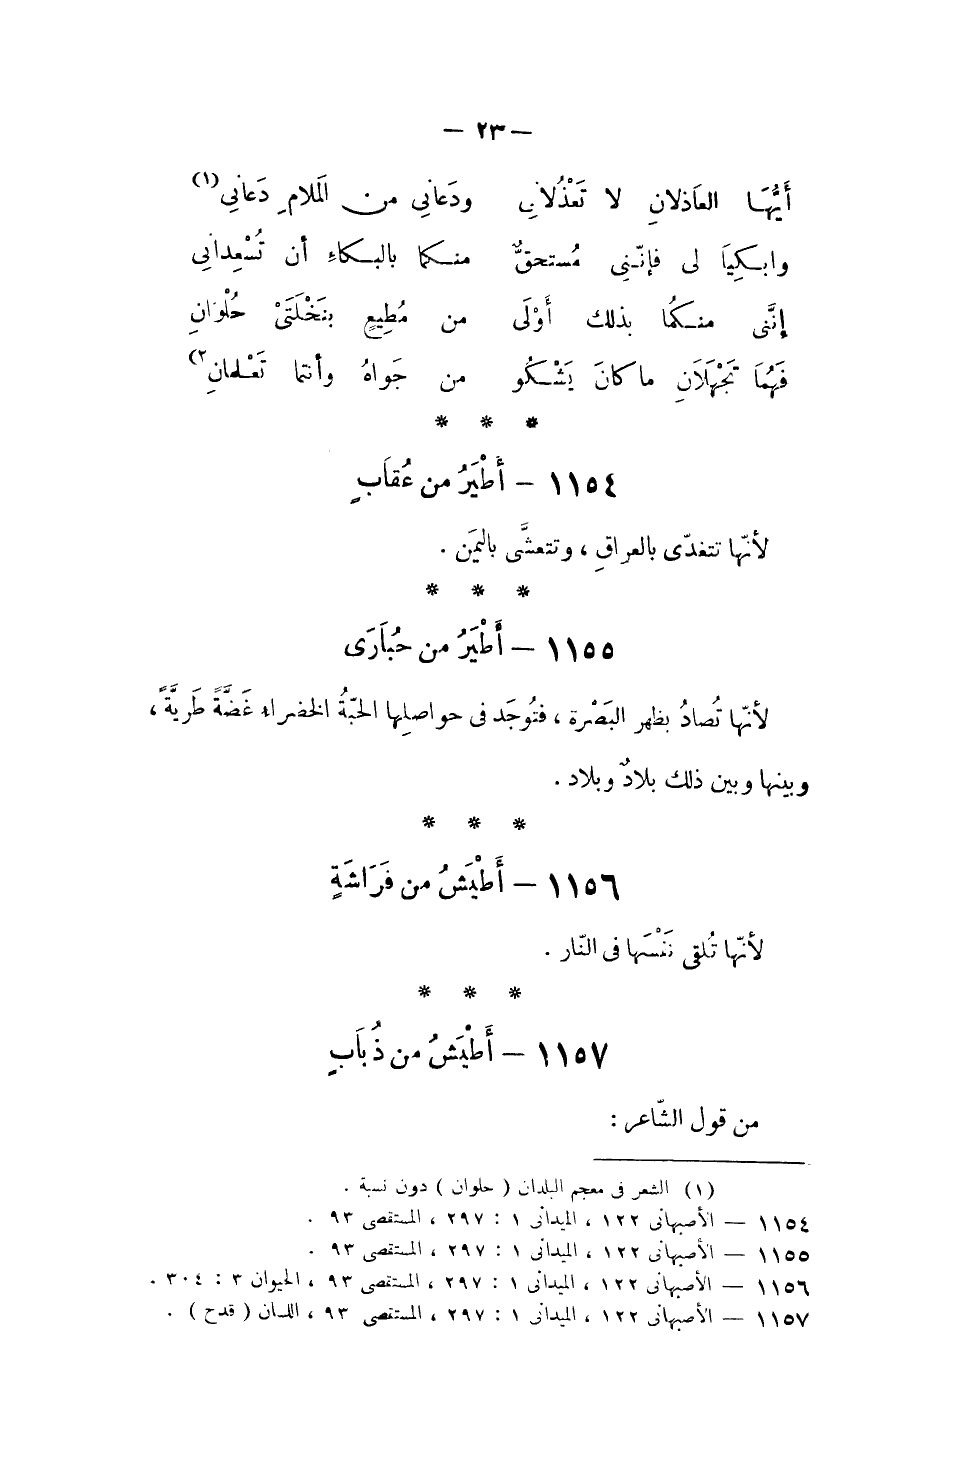 — ٢٣ —
أَيُّهَا العَاذلانِ لا تَعْذُلانِي ودَعانِي من المَلامِ دَعانِي (١)
وابـكِيَا لى فإنّنِى مُستحقٌّ منـكما بالبـكاءِ أن تُسْعِدانِى
إنَّنِى منـكُما بذلك أَوْلَى من مُطِيعٍ بنَخْلَتَىْ حُلْوَانِ
فَهُمَا تَجْهَلَانِ ما كانَ يَشْـكُو من جَواهُ وأنتما تَعْـلمانِ (٢)
* * *
١١٥٤ – أَطْيَرُ من عُقَابٍ
لأنّها تتغدّى بالعراقِ ، وتتعشَّى باليمَن .
* * *
١١٥٥ – أَطْيَرُ من حُبَارَى
لأنّها تُصادُ بظهر البَصْرة ، فتُوجَد فى حواصلِها الحَبّةُ الخضراء غَضَّةً طَريَّةً ،
وبينها وبين ذلك بلادٌ وبلاد .
* * *
١١٥٦ – أَطْيَشُ من فَرَاشَةٍ
لأنّها تُلقِى نَفْسَها فى النّار .
* * *
١١٥٧ – أَطْيَشُ من ذُبَابٍ
من قول الشّاعر :
(١) الشعر فى معجم البلدان ( حلوان ) دون نسبة .
١١٥٤ – الأصبهانى ١٢٢ ، الميدانى ١ : ٢٩٧ ، المستقصى ٩٣ .
١١٥٥ – الأصبهانى ١٢٢ ، الميدانى ١ : ٢٩٧ ، المستقصى ٩٣ .
١١٥٦ – الأصبهانى ١٢٢ ، الميدانى ١ : ٢٩٧ ، المستقصى ٩٣ ، الحيوان ٣ : ٣٠٤ .
١١٥٧ – الأصبهانى ١٢٢ ، الميدانى ١ : ٢٩٧ ، المستقصى ٩٣ ، اللسان ( قدح ) .